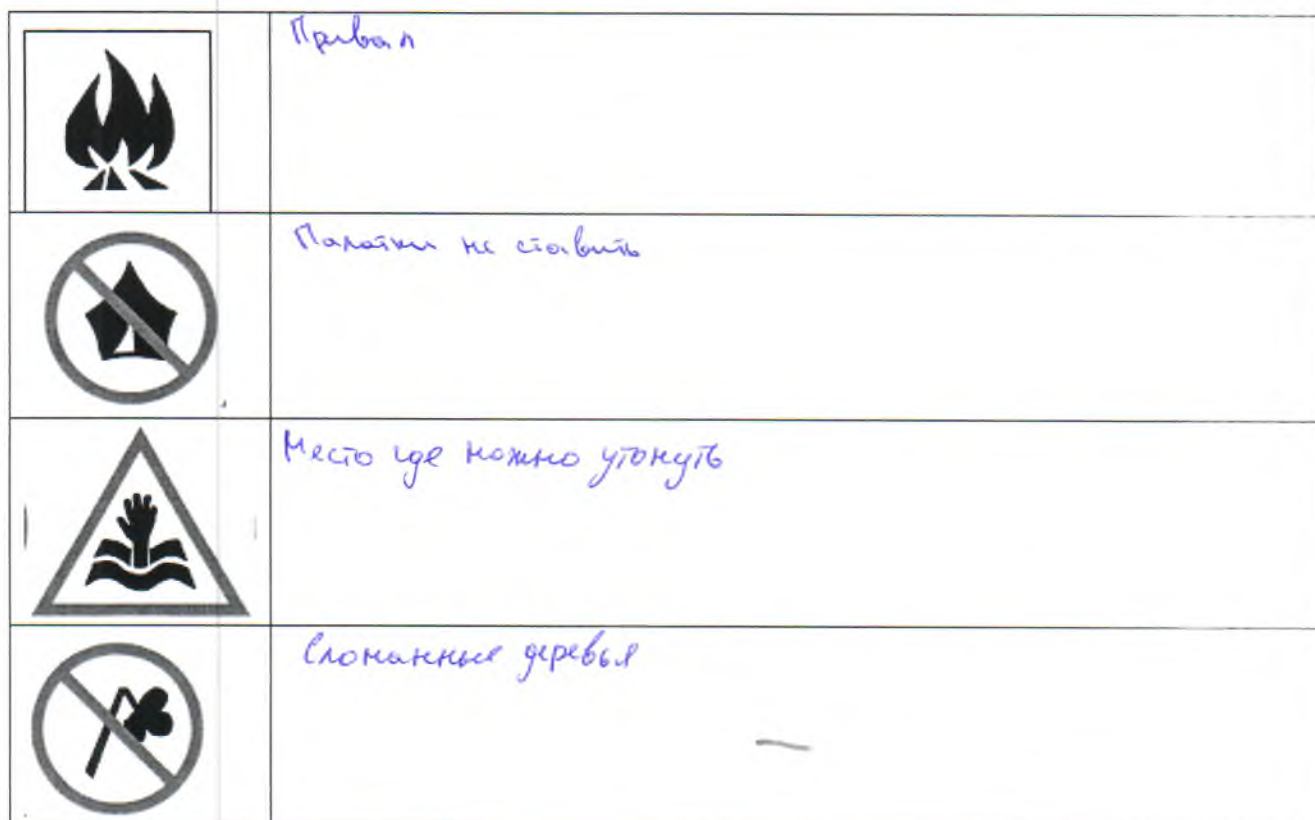 Привал
Палатки не ставить
Место где можно утонуть
Сломанные деревья